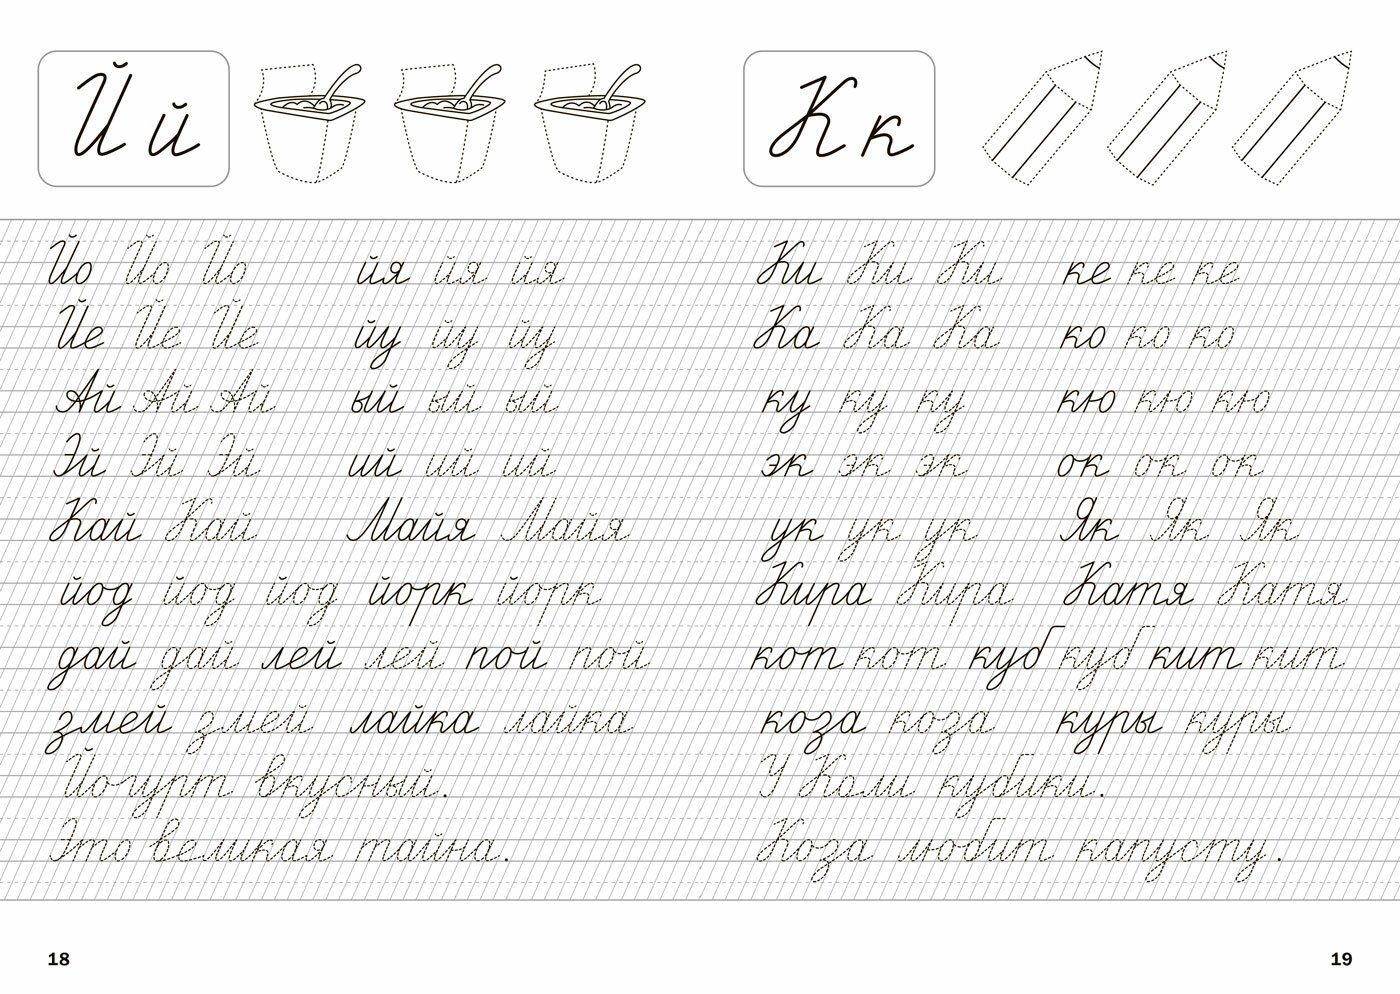 Й й
Йо Йо Йо йя йя йя
Йе Йе Йе йу йу йу
Ай Ай Ай ый ый ый
Эй Эй Эй ий ий ий
Кай Кай Майя Майя
йод йод йод йорк йорк
дай дай лей лей пой пой
змей змей лайка лайка
Йогурт вкусный.
Это великая тайна.
18
К к
Ки Ки Ки ке ке ке
Ка Ка Ка ко ко ко
ку ку ку кю кю кю
эк эк эк ок ок ок
ук ук ук Як Як Як
Кира Кира Катя Катя
кот кот куб куб кит кит
коза коза куры куры
У Коли кубики.
Коза любит капусту.
19